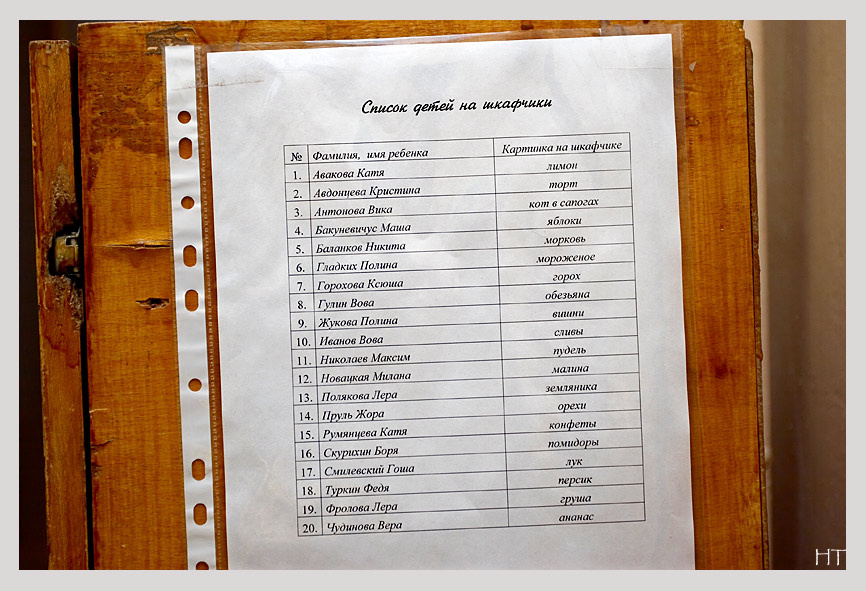 Список детей на шкафчики
№ Фамилия, имя ребенка Картинка на шкафчике
1. Авакова Катя лимон
2. Авдонцева Кристина торт
3. Антонова Вика кот в сапогах
4. Бакуневичус Маша яблоки
5. Баланков Никита морковь
6. Гладких Полина мороженое
7. Горохова Ксюша горох
8. Гулин Вова обезьяна
9. Жукова Полина вишни
10. Иванов Вова сливы
11. Николаев Максим пудель
12. Новацкая Милана малина
13. Полякова Лера земляника
14. Пруль Жора орехи
15. Румянцева Катя конфеты
16. Скурихин Боря помидоры
17. Смилевский Гоша лук
18. Туркин Федя персик
19. Фролова Лера груша
20. Чудинова Вера ананас
НТ